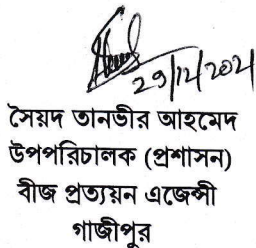 29/12/2021
সৈয়দ তানভীর আহমেদ
উপপরিচালক (প্রশাসন)
বীজ প্রত্যয়ন এজেন্সী
গাজীপুর